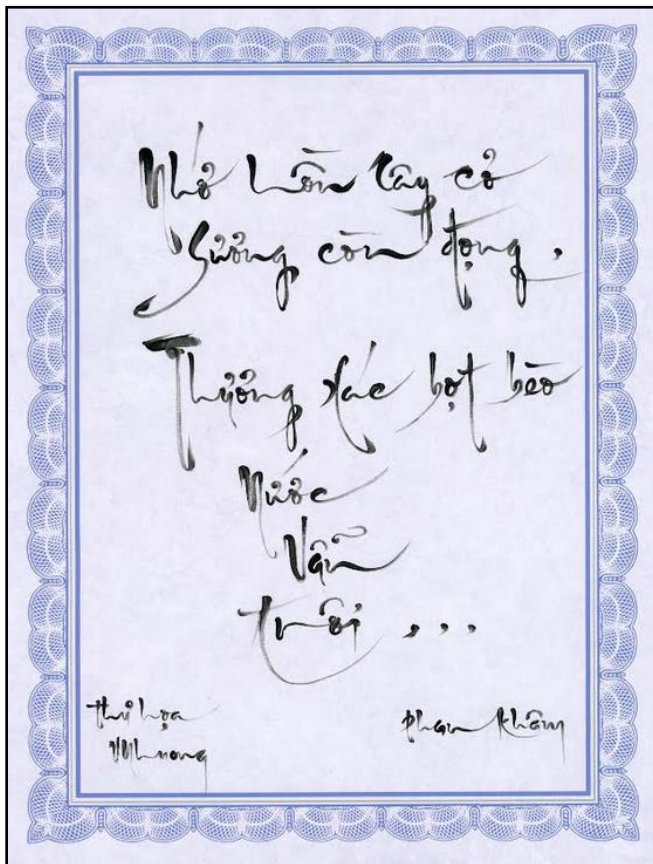 Nhớ hồn cây cỏ
Sương còn đọng.
Thương xác bọt bèo
Nước
Vẫn
trôi ...
thư họa
Phan Khâm